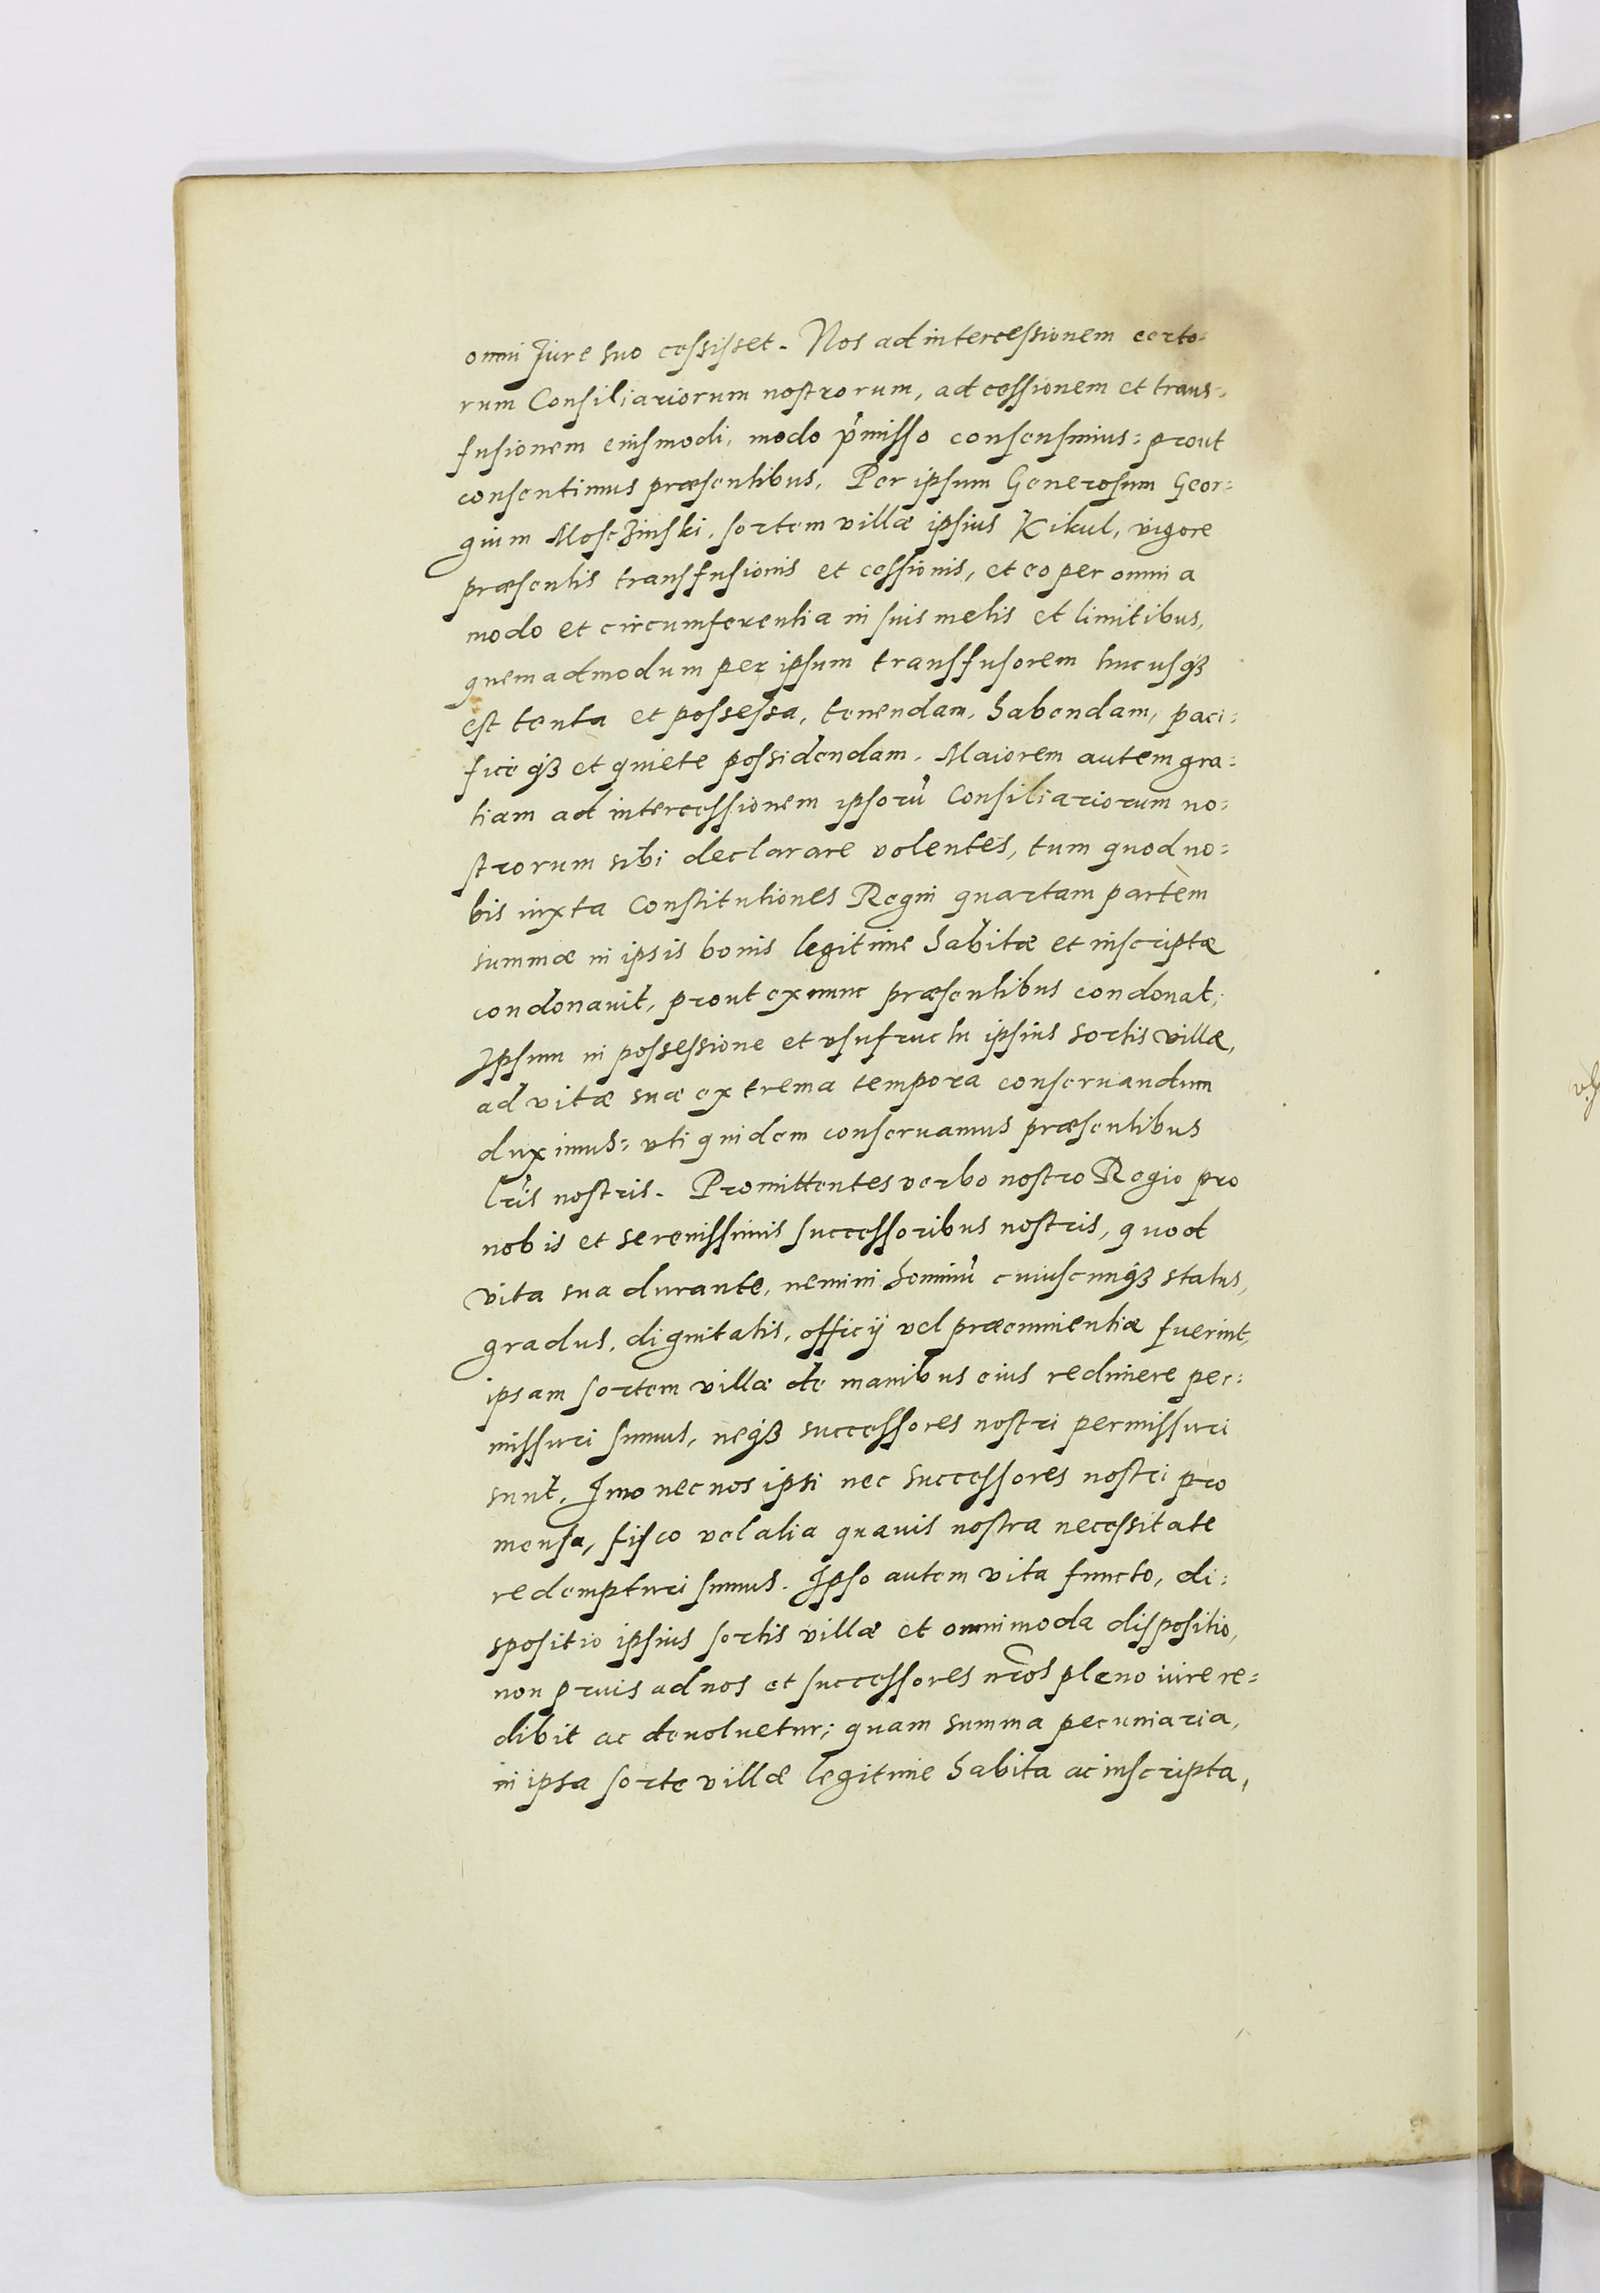 omni Jure suo cessisset. Nos ad intercessionem certo=
rum Consiliariorum nostrorum, ad cessionem et trans=
fusionem eiusmodi, modo p̃misso consensimus: prout
consentimus præsentibus. Per ipsum Generosum Geor=
gium Moszczinski, sortem villæ ipsius Kikul, vigore
præsentis transfusionis et cessionis, et eo per omnia
modo et circumferentia in suis metis et limitibus,
quemadmodum per ipsum transfusorem hucusqȝ
est tenta et possessa, tenendam, habendam, paci=
ficeqȝ et quiete possidendam. Maiorem autem gra=
tiam ad intercessionem ipsorũ Consiliariorum no=
strorum sibi declarare volentes, tum quod no=
bis iuxta Constitutiones Regni quartam partem
summæ in ipsis bonis legitime habitæ et inscriptæ
condonauit, prout ex nunc præsentibus condonat;
Ipsum in possessione et vsufructu ipsius sortis villæ,
ad vitæ suæ extrema tempora conseruandum
duximus: vti quidem conseruamus præsentibus
lr̃is nostris. Promittentes verbo nostro Regio pro
nobis et serenissimis successoribus nostris, quod
vita sua durante, nemini hominũ cuiuscunqȝ status,
gradus, dignitatis, officij vel præeminentiæ fuerint,
ipsam sortem villæ de manibus eius redimere per=
missuri sumus, neqȝ successores nostri permissuri
sunt. Imo nec nos ipsi nec successores nostri pro
mensa, fisco vel alia quauis nostra necessitate
redempturi sumus. Ipso autem vita functo, di=
spositio ipsius sortis villæ et omnimoda dispositio,
non prius ad nos et successores nr̃os pleno iure re=
dibit ac deuoluetur; quam summa pecuniaria,
in ipsa sorte villæ legitime habita ac inscripta,